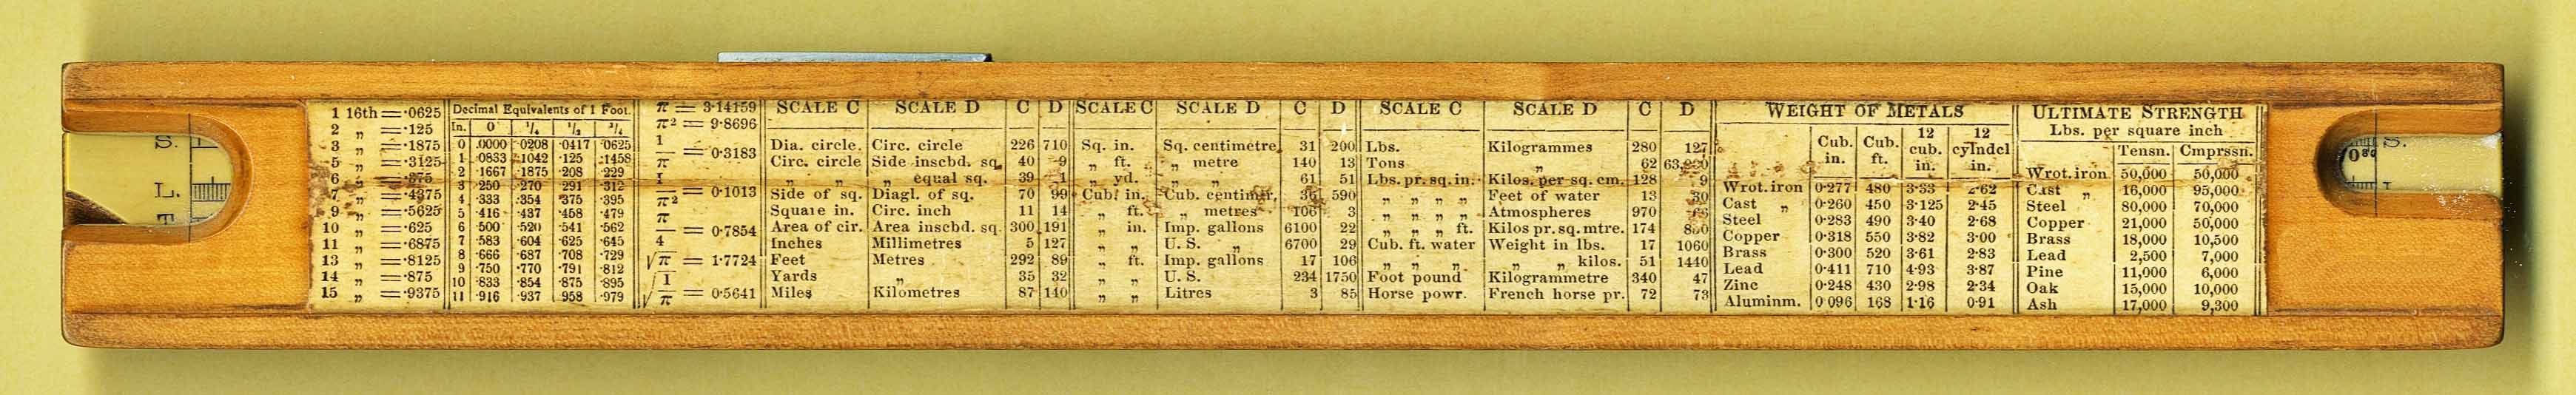 S.
L.
T
1 16th = ·0625
2 „ = ·125
3 „ = ·1875
5 „ = ·3125
6 „ = ·375
7 „ = ·4375
9 „ = ·5625
10 „ = ·625
11 „ = ·6875
13 „ = ·8125
14 „ = ·875
15 „ = ·9375
Decimal Equivalents of 1 Foot.
In. 0 ¼ ½ ¾
0 .0000 ·0208 ·0417 ·0625
1 ·0833 ·1042 ·125 ·1458
2 ·1667 ·1875 ·208 ·229
3 ·250 ·270 ·291 ·312
4 ·333 ·354 ·375 ·395
5 ·416 ·437 ·458 ·479
6 ·500 ·520 ·541 ·562
7 ·583 ·604 ·625 ·645
8 ·666 ·687 ·708 ·729
9 ·750 ·770 ·791 ·812
10 ·833 ·854 ·875 ·895
11 ·916 ·937 958 ·979
π = 3·14159
π² = 9·8696
1/π = 0·3183
1/π² = 0·1013
π/4 = 0·7854
√π = 1·7724
√1/π = 0·5641
SCALE C SCALE D C D
Dia. circle. Circ. circle 226 710
Circ. circle Side inscbd. sq. 40 9
„ „ „ equal sq. 39
Side of sq. Diagl. of sq. 70 99
Square in. Circ. inch 11 14
Area of cir. Area inscbd. sq. 300 191
Inches Millimetres 5 127
Feet Metres 292 89
Yards „ 35 32
Miles Kilometres 87 140
SCALE C SCALE D C D
Sq. in. Sq. centimetre 31 200
„ ft. „ metre 140 13
„ yd. „ „ 61 51
Cub. in. Cub. centimtr. 36 590
„ ft. „ metres 106 3
„ in. Imp. gallons 6100 22
„ „ U. S. „ 6700 29
„ ft. Imp. gallons 17 106
„ „ U. S. 234 1750
„ „ Litres 3 85
SCALE C SCALE D C D
Lbs. Kilogrammes 280 127
Tons „ 62
Lbs. pr. sq. in. Kilos. per sq. cm. 128 9
„ „ „ „ Feet of water 13 30
„ „ „ „ Atmospheres 970
„ „ „ ft. Kilos pr. sq. mtre. 174
Cub. ft. water Weight in lbs. 17 1060
„ „ „ „ „ kilos. 51 1440
Foot pound Kilogrammetre 340 47
Horse powr. French horse pr. 72 73
WEIGHT OF METALS
Cub. in. Cub. ft. 12 cub. in. 12 cylndcl in.
Wrot. iron 0·277 480 3·33 2·62
Cast „ 0·260 450 3·125 2·45
Steel 0·283 490 3·40 2·68
Copper 0·318 550 3·82 3·00
Brass 0·300 520 3·61 2·83
Lead 0·411 710 4·93 3·87
Zinc 0·248 430 2·98 2·34
Aluminm. 0·096 168 1·16 0·91
ULTIMATE STRENGTH
Lbs. per square inch
Tensn. Cmprssn.
Wrot. iron 50,000 50,000
Cast „ 16,000 95,000
Steel 80,000 70,000
Copper 21,000 50,000
Brass 18,000 10,500
Lead 2,500 7,000
Pine 11,000 6,000
Oak 15,000 10,000
Ash 17,000 9,300
S.